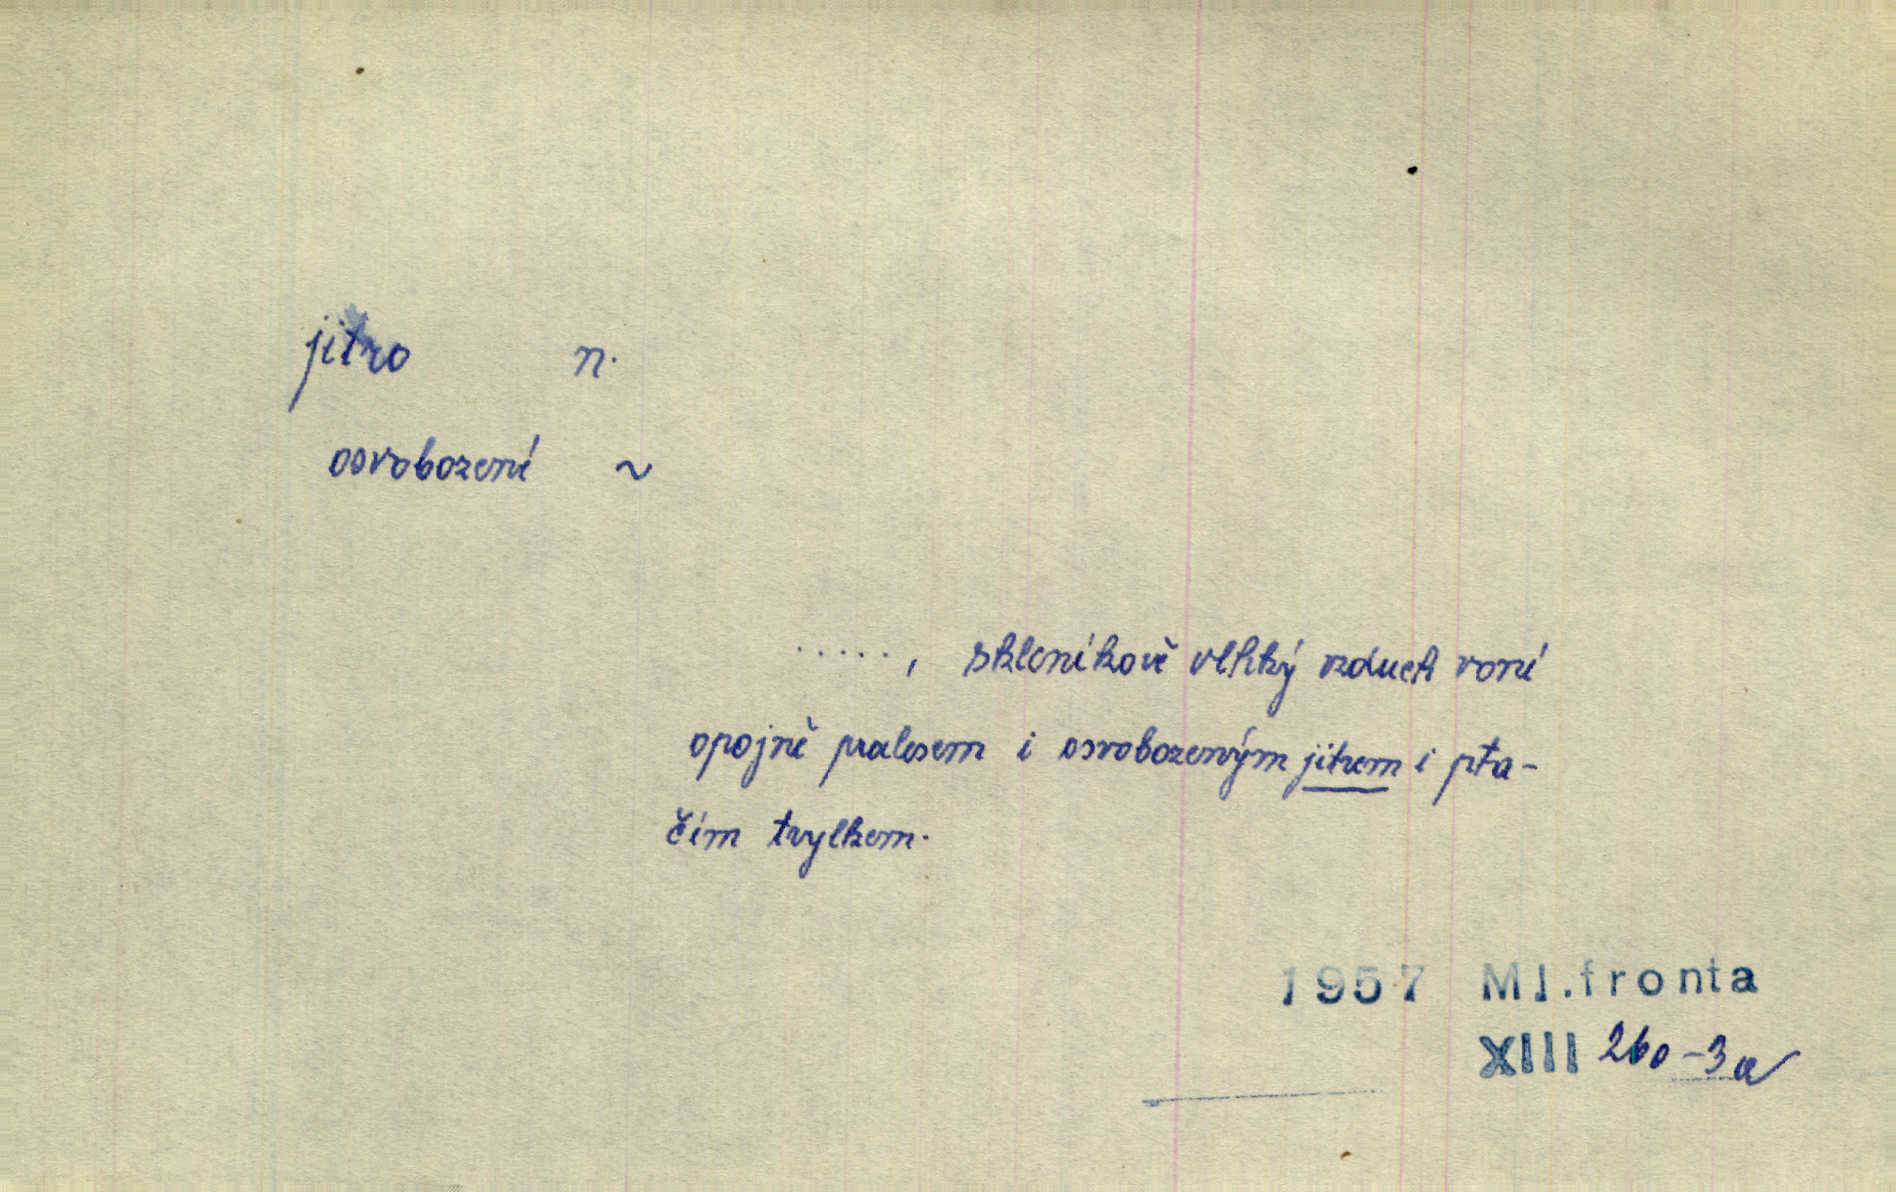 jitro n.
osvobozené ~
....., skleníkově vlhký vzduch voní
opojně pralesem i osvobozeným jitrem i pta-
čím trylkem.
1957 Ml.fronta
XIII 260-3a